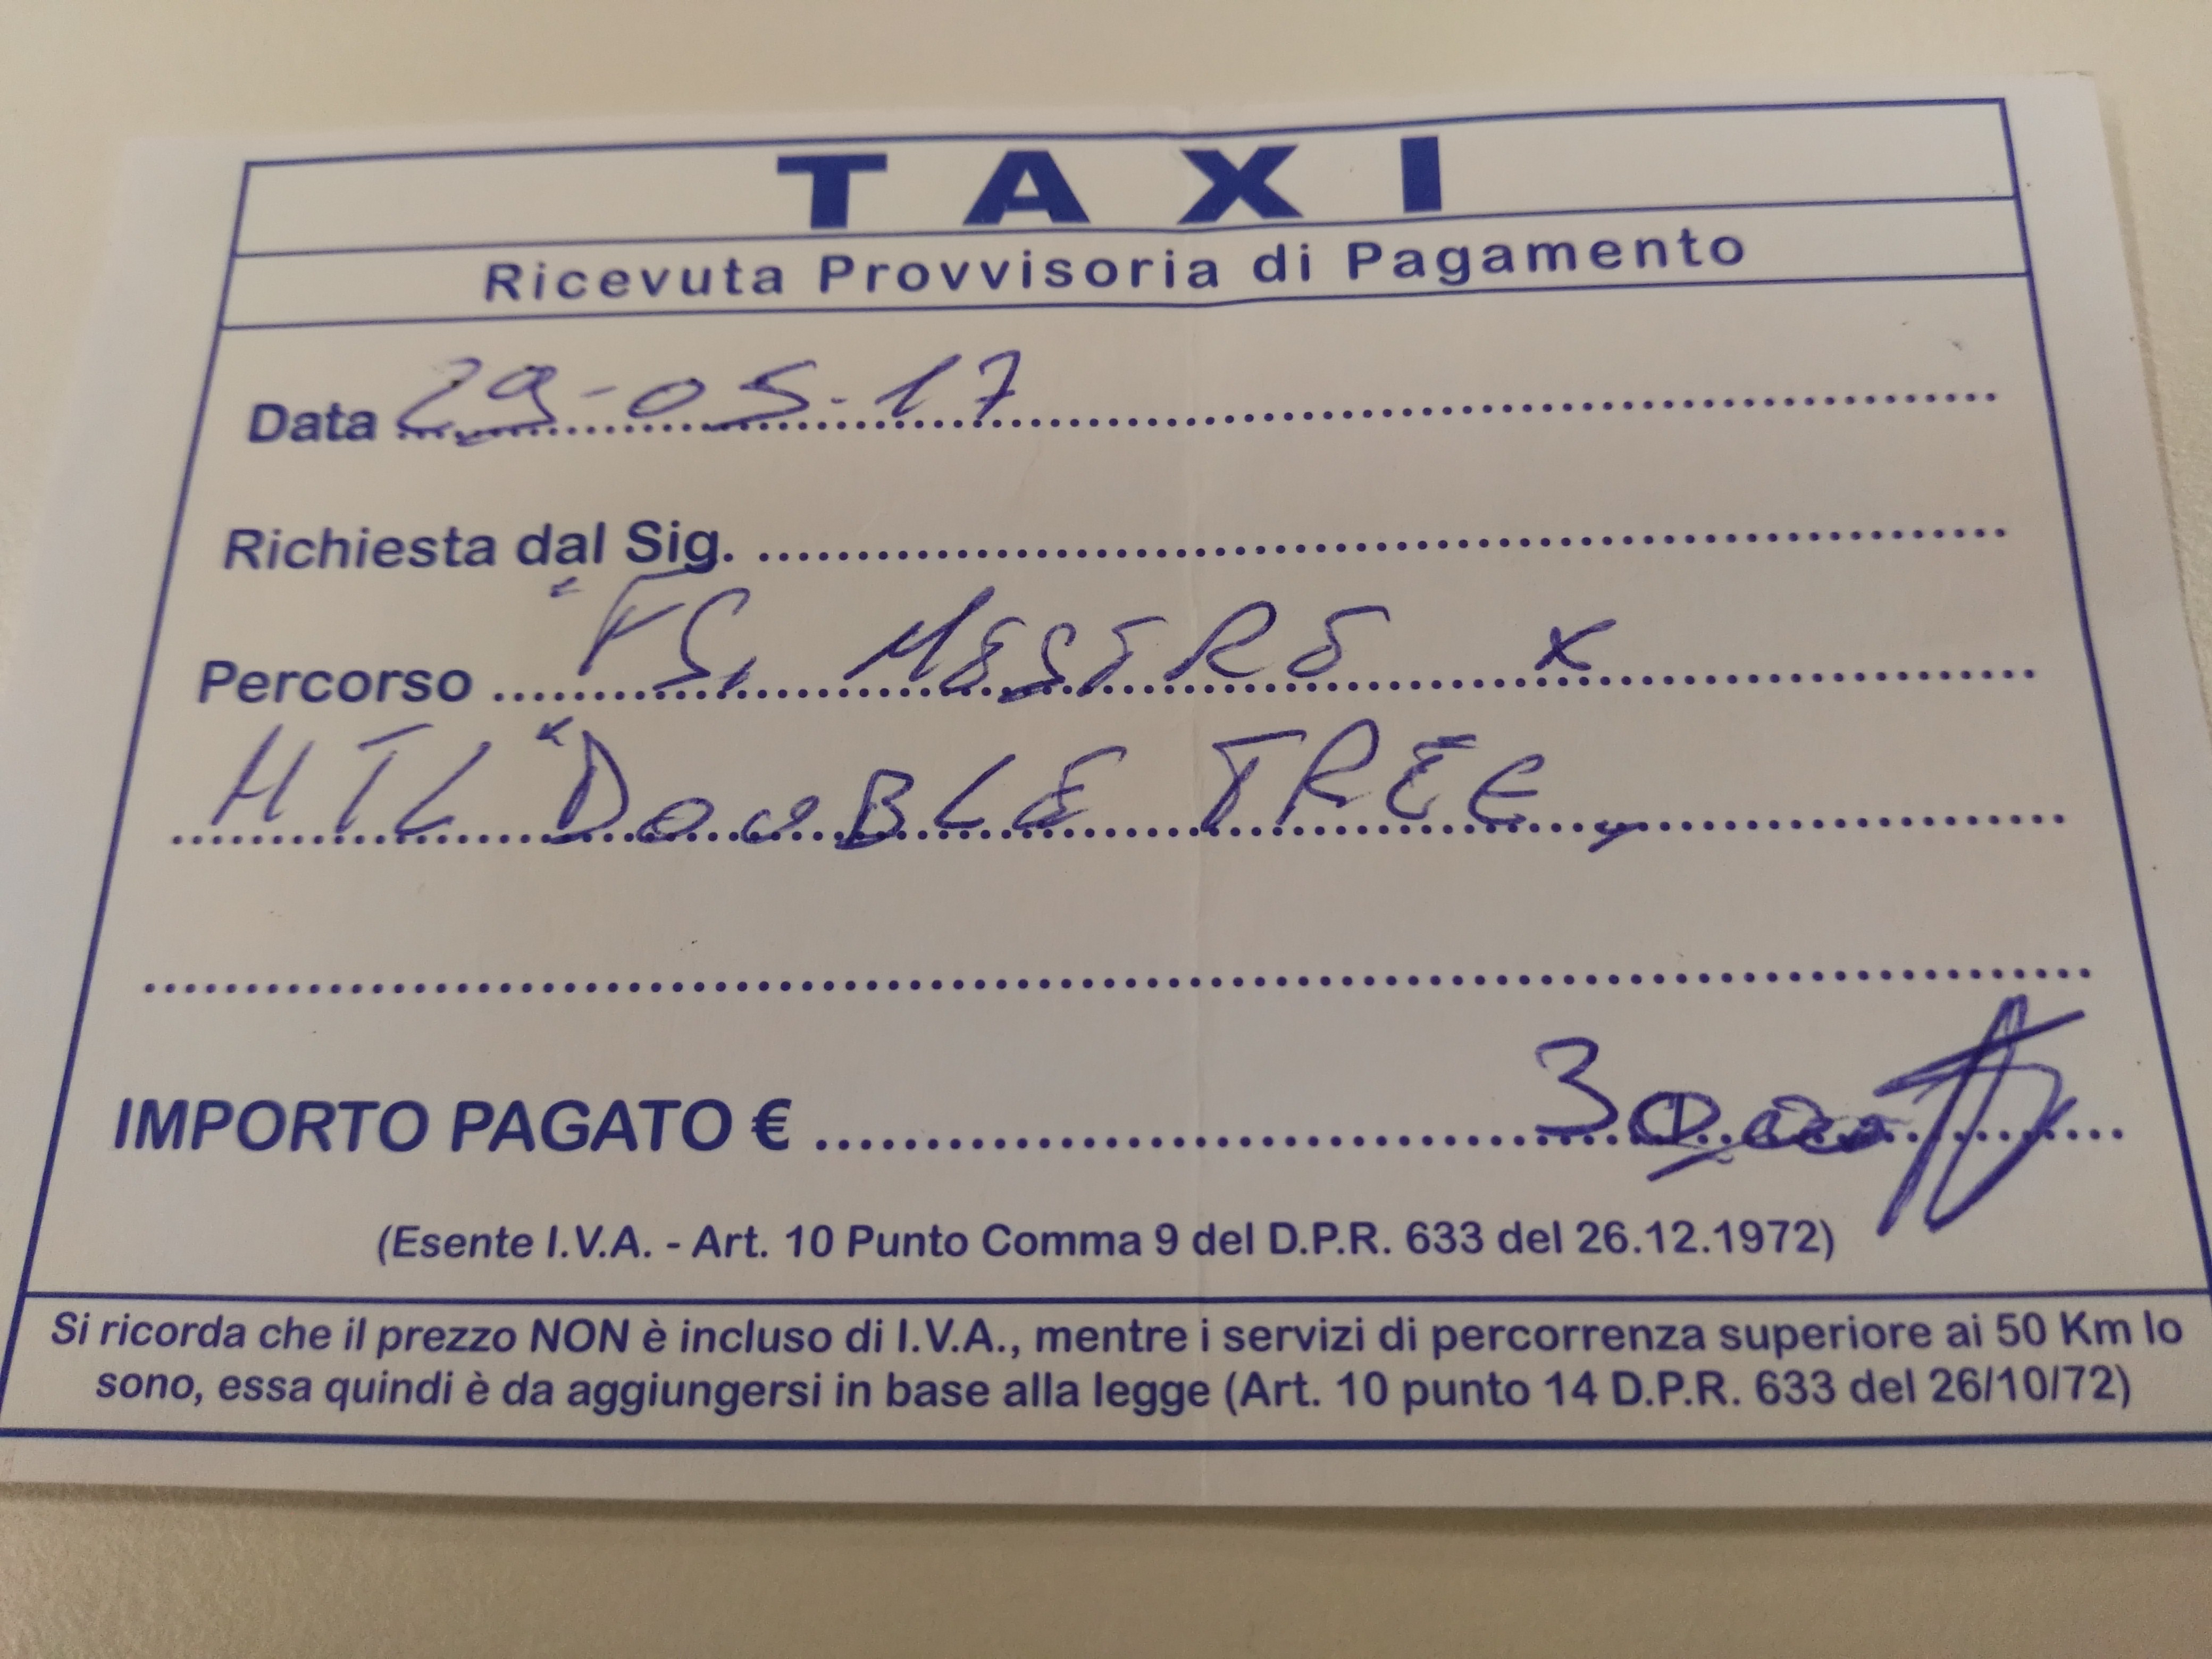 TAXI
Ricevuta Provvisoria di Pagamento
Data 29-05-17
Richiesta dal Sig.
Percorso "FS, MESTRE X
HTL "DOUBLE TREE"
IMPORTO PAGATO € 30,00
(Esente I.V.A. - Art. 10 Punto Comma 9 del D.P.R. 633 del 26.12.1972)
Si ricorda che il prezzo NON è incluso di I.V.A., mentre i servizi di percorrenza superiore ai 50 Km lo
sono, essa quindi è da aggiungersi in base alla legge (Art. 10 punto 14 D.P.R. 633 del 26/10/72)